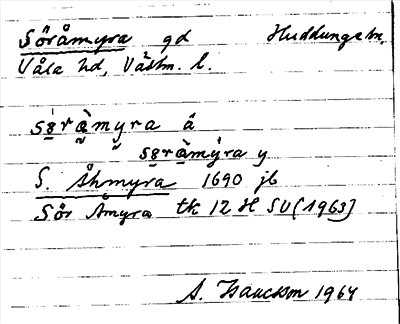 Söråmyra gd Huddunge sn,
Våla hd, Västm. l.
sɜràmyra ä
sɜràmýra y
S. Åhmyra 1690 jb
Sör Åmyra tk 12 H SV (1963)
A. Isaacsson 1964